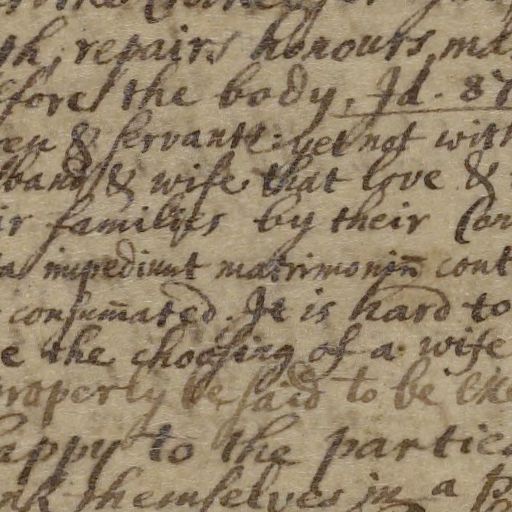 th, repairs honours ma
fore the body, Id. 87
en & servants: yet not with
band & wife that love &
ir families by their Con
ta impediunt matrimoniũ cont
consum̃ated. It is hard to
e the choosing of a wife
properly be said to be exe
appy to the parties
themselves in a p